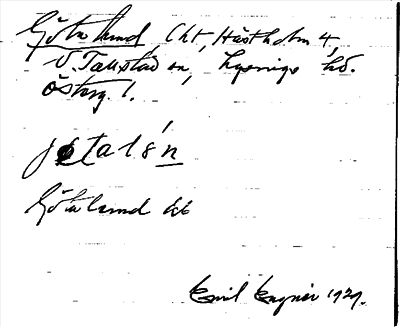 Götalund, Cht, Hästholm 4,
V. Tollstad sn, Lysings hd.
Österg. l.
jøtalán
Götalund EK
Emil Eegnér 1929.